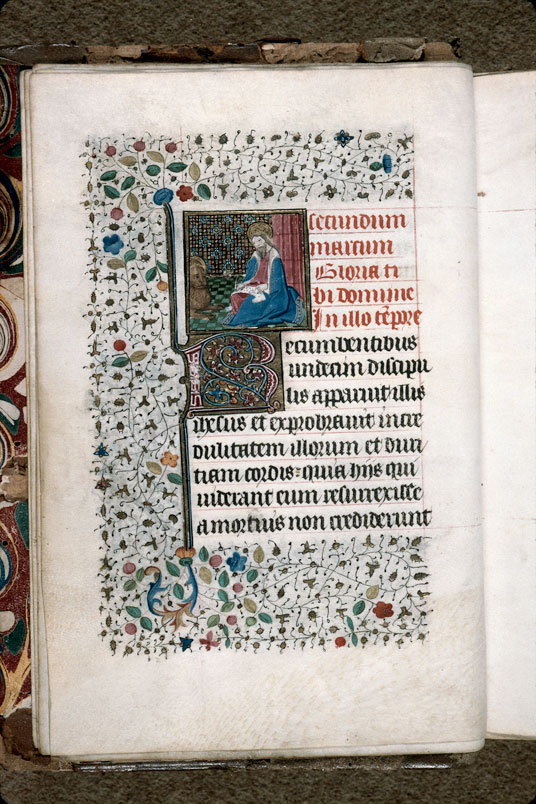 secundum
marcum
Gloria ti
bi domine
In illo tēpre
Recumbentibus
undecim discipu
lis apparuit illis
ihesus et exprobrauit incre
dulitatem illorum et duri
tiam cordis: quia hijs qui
uiderant eum resurrexisse
a mortuis non crediderunt